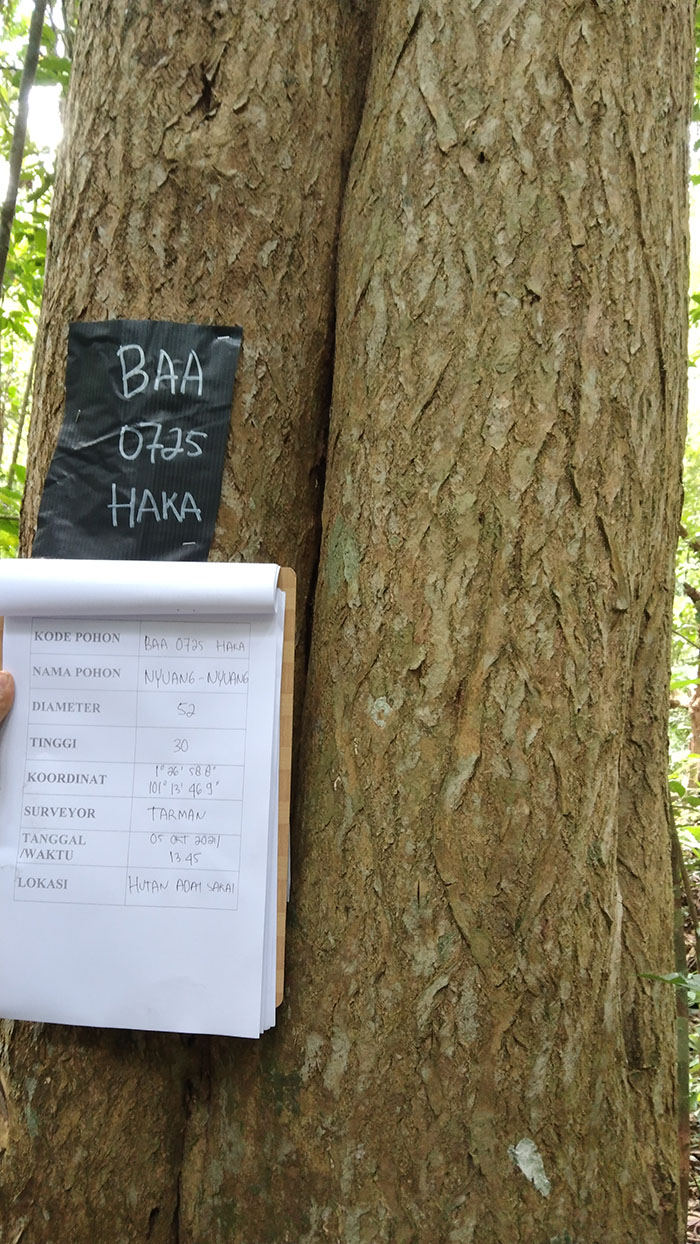 BAA
0725
HAKA
KODE POHON BAA 0725 HAKA
NAMA POHON NYUANG-NYUANG
DIAMETER 52
TINGGI 30
KOORDINAT 1° 26' 58.8"
101° 13' 46.9"
SURVEYOR TARMAN
TANGGAL 05 OKT 2021/
/WAKTU 13.45
LOKASI HUTAN ADAT SAKAI